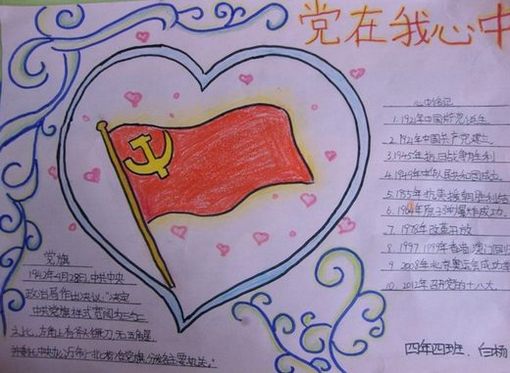 党在我心中
心中铭记
2. 1921年中国共产党建立。
3. 1945年抗日战争胜利
4. 1949年中华人民共和国成立。
5. 1953年抗美援朝胜利结
6. 1964年原子弹爆炸成功。
7. 1978年改革开放
8. 1997 1999年香港 澳门回归
9. 2008年北京奥运会成功举
10. 2012年召开党的十八大。
党旗
1942年4月28日,中共中央
政治局作出决议:"决定
中共党旗样式
五角星,
四年四班、白杨